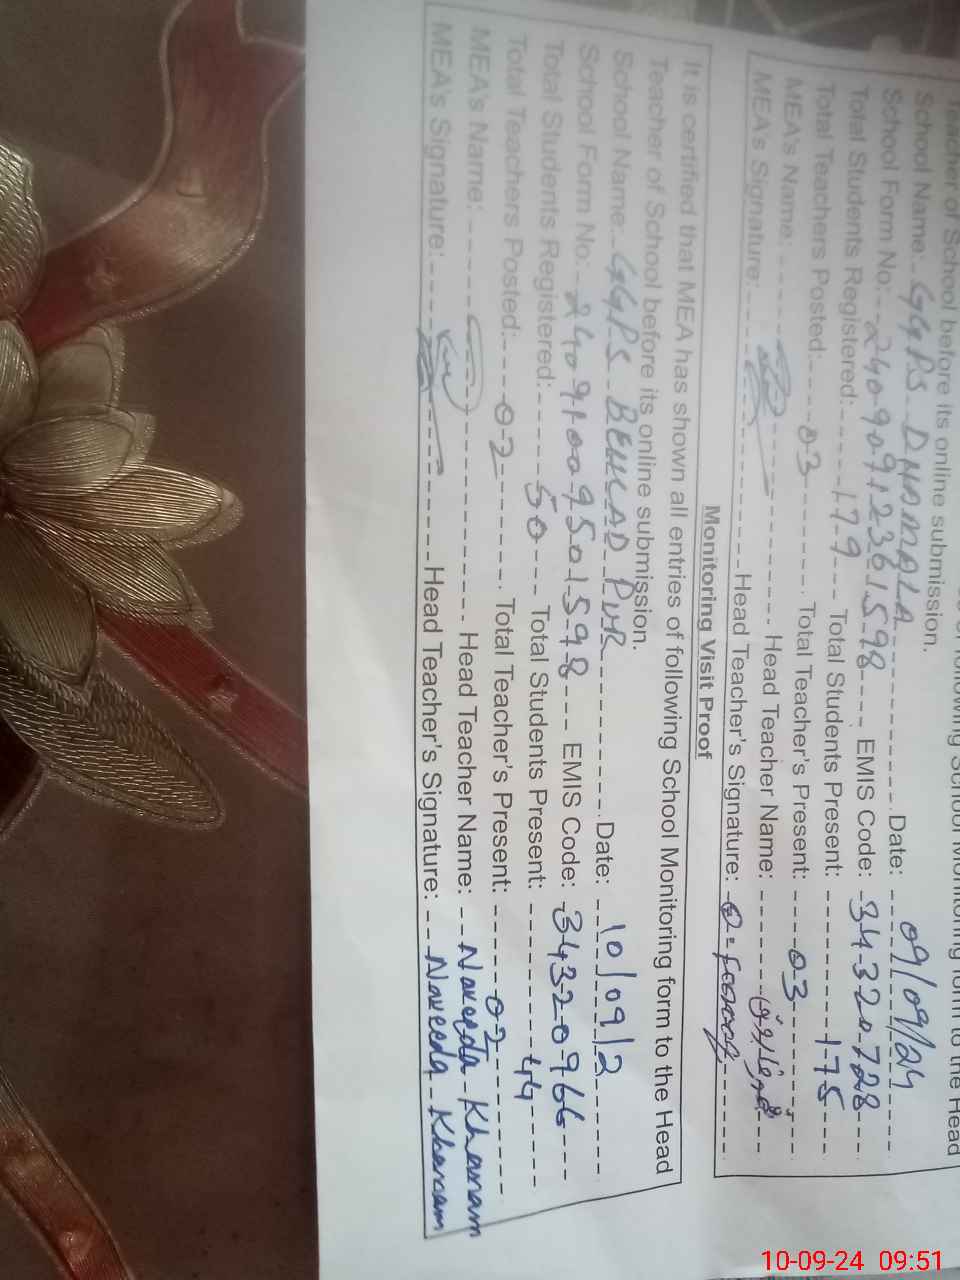 Teacher of School before its online submission.
School Name: GGPS DHAMALA Date: 09/09/24
School Form No: 24090912361598 EMIS Code: 34320728
Total Students Registered: 179 Total Students Present: 175
Total Teachers Posted: 03 Total Teacher's Present: 03
MEA's Name: Head Teacher Name:
MEA's Signature: Head Teacher's Signature:
Monitoring Visit Proof
It is certified that MEA has shown all entries of following School Monitoring form to the Head
Teacher of School before its online submission.
School Name: GGPS Date: 10/09/2
School Form No: 24091009501598 EMIS Code: 34320966
Total Students Registered: 50 Total Students Present: 44
Total Teachers Posted: 02 Total Teacher's Present: 02
MEA's Name: Head Teacher Name: Naveeda Khanam
MEA's Signature: Head Teacher's Signature: Naveeda Khanam
10-09-24 09:51